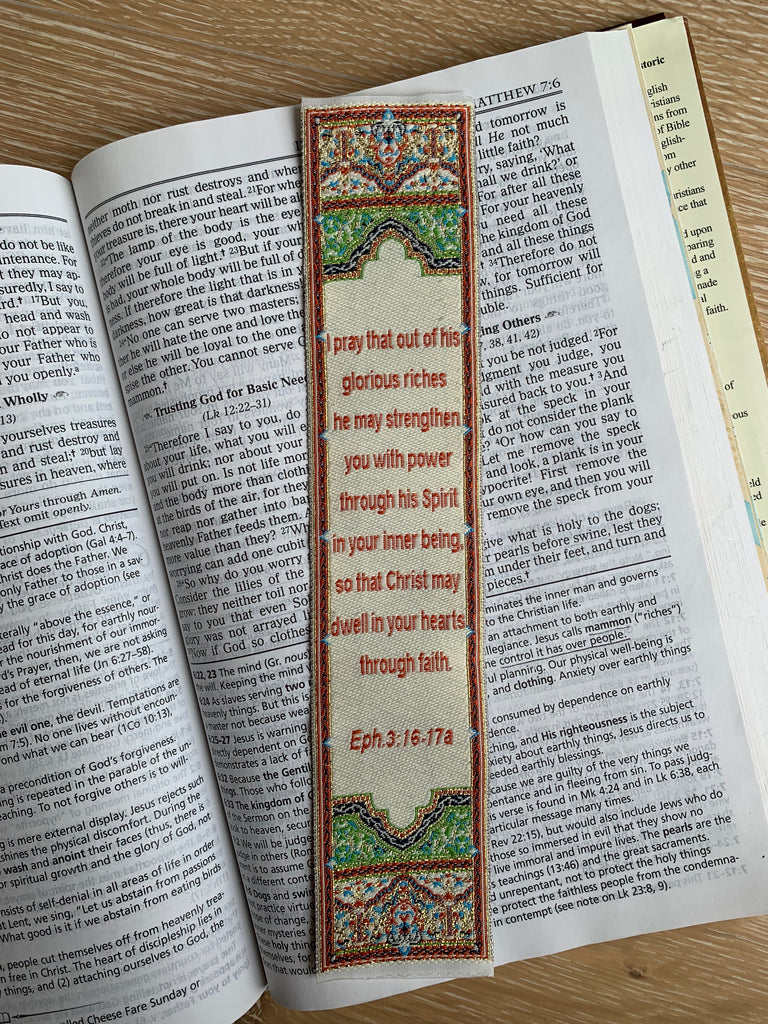 do not be like
intenance. For
t they may ap-
suredly, I say to
ard.† ¹⁷But you,
head and wash
o not appear to
our Father who is
your Father who
you openly.ᵃ
Wholly
13)
yourselves treasures
and rust destroy and
n and steal;† ²⁰but lay
sures in heaven, where
or Yours through Amen.
Text omit openly.
tionship with God. Christ,
ace of adoption (Gal 4:4-7).
Christ does the Father. We
only Father to those in a sav-
y the grace of adoption (see
terally "above the essence," or
ead for this day, for earthly nour-
the nourishment of our immor-
rd's Prayer, then, we are not asking
ead of eternal life (Jn 6:27–58).
s for the forgiveness of others. The
e evil one, the devil. Temptations are
m 7:5). No one lives without encoun-
ond what we can bear (1Co 10:13).
a precondition of God's forgiveness.
ng is repeated in the parable of the un-
eaching. To not forgive others is to will-
g is mere external display. Jesus rejects such
shines the physical discomfort. During the
wash and anoint their faces (thus, there is
r spiritual growth and the glory of God, not
nsists of self-denial in all areas of life in order
t Lent, we sing, "Let us abstain from passions
What good is it if we abstain from eating birds
, people cut themselves off from heavenly trea-
n free in Christ. The heart of discipleship lies in
things, and (2) attaching ourselves to God, the
lled Cheese Fare Sunday or
MATTHEW 7:6
neither moth nor rust destroys and whe
thieves do not break in and steal. ²¹For whe
your treasure is, there your heart will be al
²²"The lamp of the body is the eye
therefore your eye is good, your w
body will be full of light.† ²³But if your
is bad, your whole body will be full of d
ness. If therefore the light that is in y
darkness, how great is that darkness
²⁴"No one can serve two masters;
her he will hate the one and love the
or else he will be loyal to the one
spise the other. You cannot serve G
mammon.†
Trusting God for Basic Need
(Lk 12:22–31)
²⁵"Therefore I say to you, do
about your life, what you will e
you will drink; nor about your
you will put on. Is not life mor
and the body more than cloth
at the birds of the air, for they
nor reap nor gather into bar
heavenly Father feeds them. A
more value than they? ²⁷Wh
worrying can add one cubit
²⁸"So why do you worry
Consider the lilies of the
grow: they neither toil nor
say to you that even So
glory was not arrayed l
Now if God so clothes
I pray that out of his
glorious riches
he may strengthen
you with power
through his Spirit
in your inner being,
so that Christ may
dwell in your hearts
through faith.
Eph.3:16-17a
d tomorrow is
ll He not much
little faith?
ry, saying, 'What
hall we drink?' or
For after all these
For your heavenly
need all these
he kingdom of God
and all these things
³⁴Therefore do not
, for tomorrow will
things. Sufficient for
uble.
ing Others
, 38, 41, 42)
you be not judged. ²For
dgment you judge, you
d with the measure you
sured back to you.† ³And
at the speck in your
do not consider the plank
? ⁴Or how can you say to
Let me remove the speck
and look, a plank is in your
ypocrite! First remove the
ur own eye, and then you will
remove the speck from your
give what is holy to the dogs;
r pearls before swine, lest they
m under their feet, and turn and
pieces.†
6:22, 23 The mind (Gr. nous
he will. Keeping the mind
6:24 As slaves serving two
heavenly things. But this
master not because we
25-27 Jesus is warning
directly dependent on G
demonstrates a lack of f
6:32 Because the Gentil
things. Those who follo
6:33 The kingdom of
e Sermon on the Mount
ok to heaven, secur
We will be judge
dge in others (Rom
is to assume G
a different cont
Dogs and swin
practice virtue
se of change,
er mysteries o
he holy thing
dom, for in
that would
minates the inner man and governs
to the Christian life.
an attachment to both earthly and
llegiance. Jesus calls mammon ("riches")
e control it has over people.
ul planning. Our physical well-being is
and clothing. Anxiety over earthly things
consumed by dependence on earthly
dence.
ching, and His righteousness is the subject
xiety about earthly things, Jesus directs us to
eeded earthly blessings.
cause we are guilty of the very things we
pentance and in fleeing from sin. To pass judg-
is verse is found in Mk 4:24 and in Lk 6:38, each
articular message many times.
Rev 22:15), but would also include Jews who do
those so immersed in evil that they show no
ive immoral and impure lives. The pearls are the
s teachings (13:46) and the great sacraments.
unrepentant, not to protect the holy things
e protect the faithless people from the condemna-
in contempt (see note on Lk 23:8, 9).
storic
glish
ristians
ns from
of Bible
glish-
om
y other
ristians
ce that
d upon
paring
d and
g a
made
faith.
of
ous